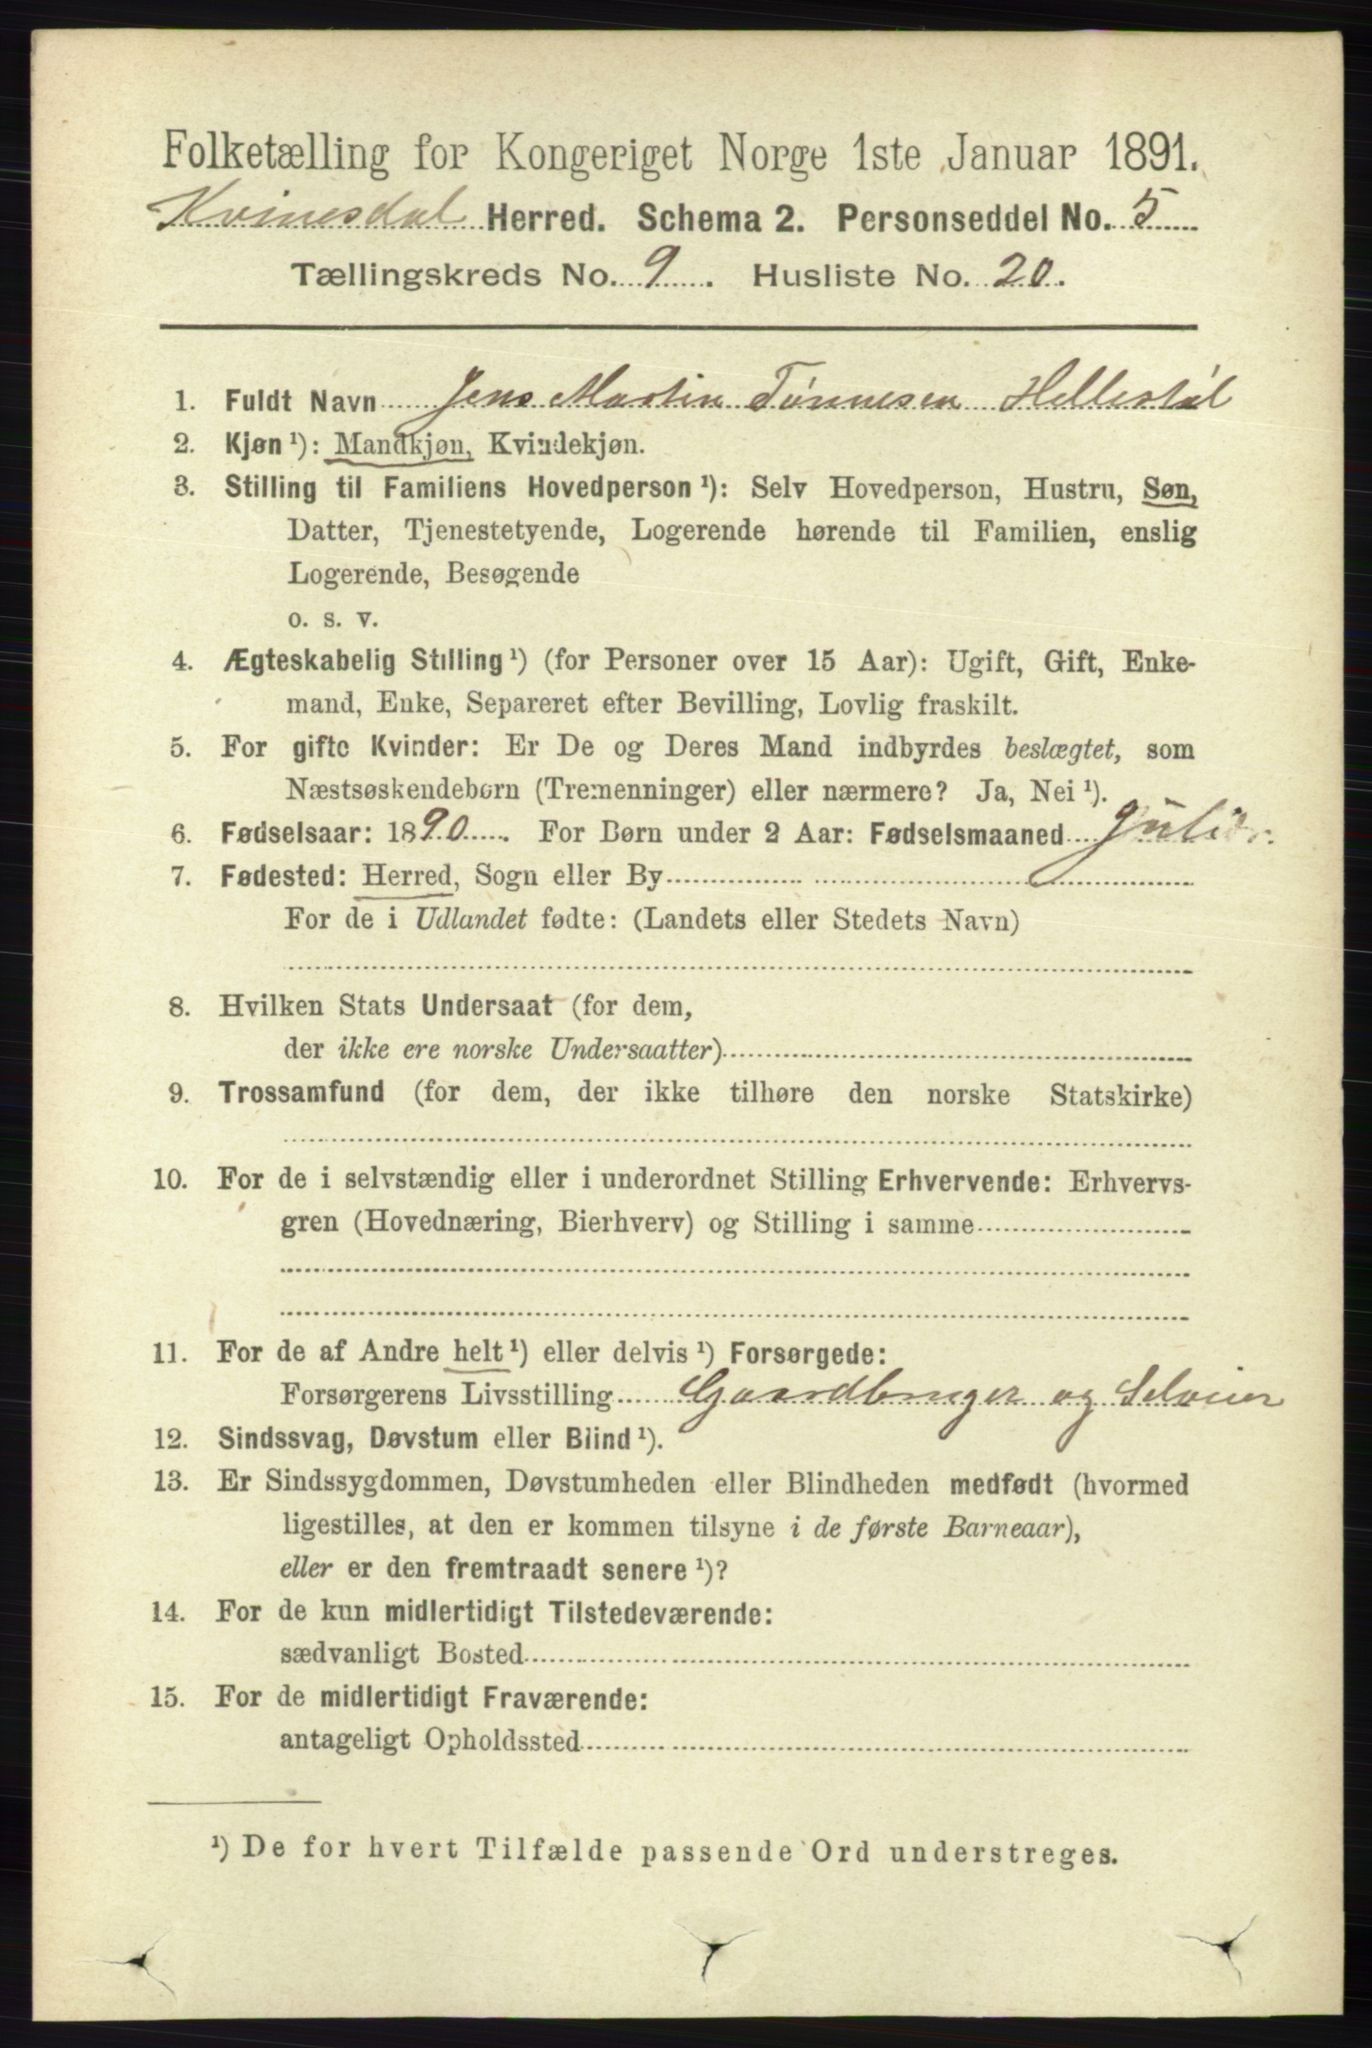 Folketælling for Kongeriget Norge 1ste Januar 1891.
Kvinesdal Herred. Schema 2. Personseddel No. 5
Tællingskreds No. 9. Husliste No. 20.
1. Fuldt Navn Jens Martin Tønnesen Hellestøl
2. Kjøn ¹): Mandkjøn, Kvindekjøn.
3. Stilling til Familiens Hovedperson ¹): Selv Hovedperson, Hustru, Søn,
Datter, Tjenestetyende, Logerende hørende til Familien, enslig
Logerende, Besøgende
o. s. v.
4. Ægteskabelig Stilling ¹) (for Personer over 15 Aar): Ugift, Gift, Enke-
mand, Enke, Separeret efter Bevilling, Lovlig fraskilt.
5. For gifte Kvinder: Er De og Deres Mand indbyrdes beslægtet, som
Næstsøskendebørn (Tremenninger) eller nærmere? Ja, Nei ¹).
6. Fødselsaar: 1890. For Børn under 2 Aar: Fødselsmaaned Juli
7. Fødested: Herred, Sogn eller By
For de i Udlandet fødte: (Landets eller Stedets Navn)
8. Hvilken Stats Undersaat (for dem,
der ikke ere norske Undersaatter)
9. Trossamfund (for dem, der ikke tilhøre den norske Statskirke)
10. For de i selvstændig eller i underordnet Stilling Erhvervende: Erhvervs-
gren (Hovednæring, Bierhverv) og Stilling i samme
11. For de af Andre helt ¹) eller delvis ¹) Forsørgede:
Forsørgerens Livsstilling Gaardbruger og Selveier
12. Sindssvag, Døvstum eller Blind ¹).
13. Er Sindssygdommen, Døvstumheden eller Blindheden medfødt (hvormed
ligestilles, at den er kommen tilsyne i de første Barneaar),
eller er den fremtraadt senere ¹)?
14. For de kun midlertidigt Tilstedeværende:
sædvanligt Bosted
15. For de midlertidigt Fraværende:
antageligt Opholdssted
¹) De for hvert Tilfælde passende Ord understreges.